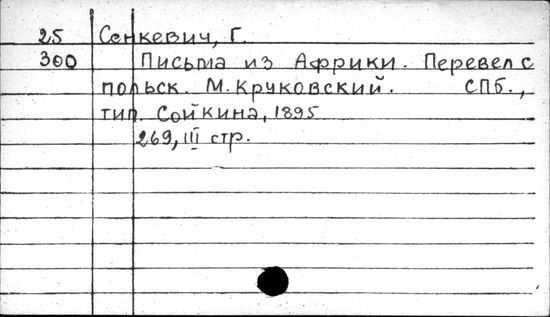 25 Сенкевич, Г.
300 Письма из Африки. Перевел с
польск. М. Круковский. СПб.,
тип. Сойкина, 1895
269, III стр.